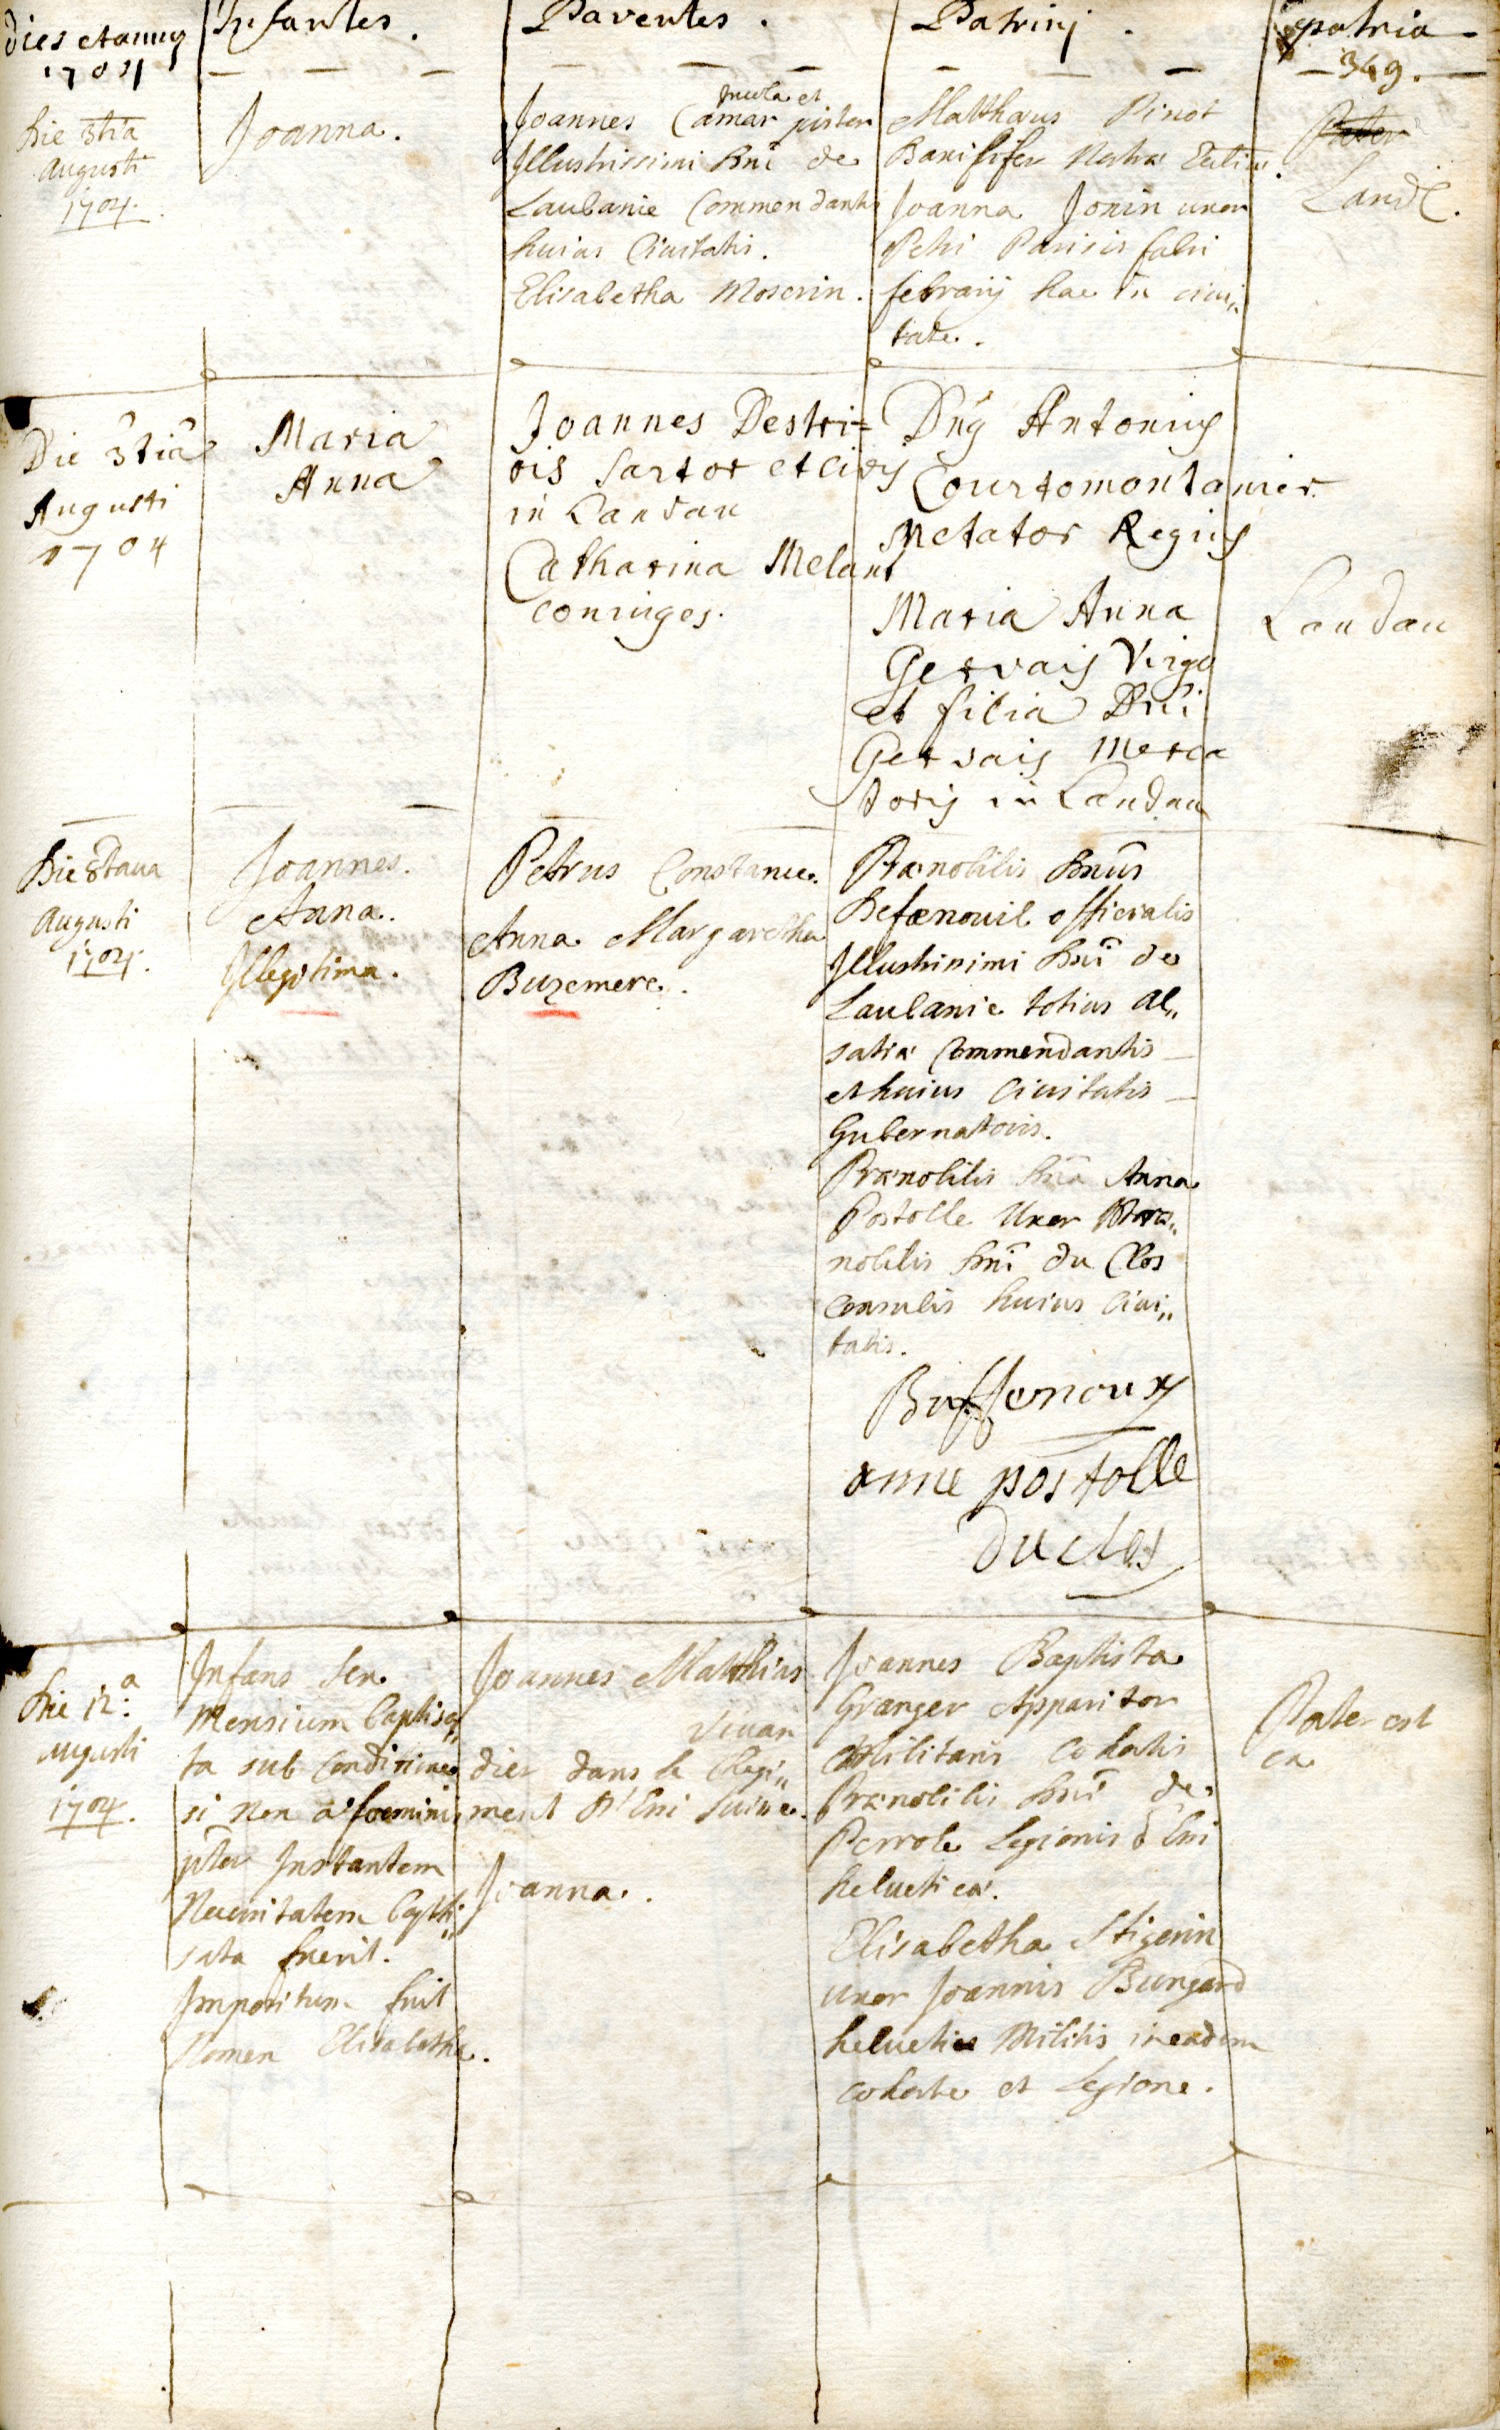 dies et annus
1704
Infantes.
Parentes.
Patrinj.
patria
349.
Die 3tia
Augusti
1704.
Joanna.
Joannes Camar pistor
Illustrissimi Dni de
Laubanie Commendantis
huius Ciuitatis.
Elisabetha Moserin.
Matthæus Pinot
Joanna Jonin uxor
Petri Parisis fabri
ferrarij hac in ciui„
tate.
Pater
Die 3tia
Augusti
1704
Maria
Anna
Joannes Destri=
ois Sartor et civis
in Landau
Catharina Melani
coniuges.
Dng Antonius
Courtomontanier
Metator Regius
Maria Anna
Gervais Virgo
et filia Dni
Gervais Merca
toris in Landau
Landau
Die 8taua
Augusti
1704.
Joannes.
Anna.
Illegitima.
Petrus Constance.
Anna Margaretha
Buzemere.
Prænobilis Dnus
Defænouil officialis
Illustrissimi Dni de
Laubanie totius Al„
satiæ Commendantis
et huius Ciuitatis
Gubernatoris.
Prænobilis Dna Anna
Postolle Uxor Præ„
nobilis Dni du Clos
Consulis huius Ciui„
tatis.
Buffenoux
anne postolle
duclos
Die 12.a
Augusti
1704.
Infans sex
Mensium baptisa„
ta sub Conditione
si non a foeminis
pter Instantem
Necessitatem bapti„
sata fuerit.
Impositum fuit
Nomen Elisabetha.
Joannes Matthias
Viuan
dier dans le Regi„
ment D'Eni Suisse.
Joanna.
Joannes Baptista
Granger Apparitor
Militaris Cohortis
Prænobilis Dni de
Perrole Legionis d'Eni
helueticæ.
Elisabetha Stigerin
uxor Joannis Bungard
heluetici Militis in eadem
cohorte et Legione.
Pater est
ex